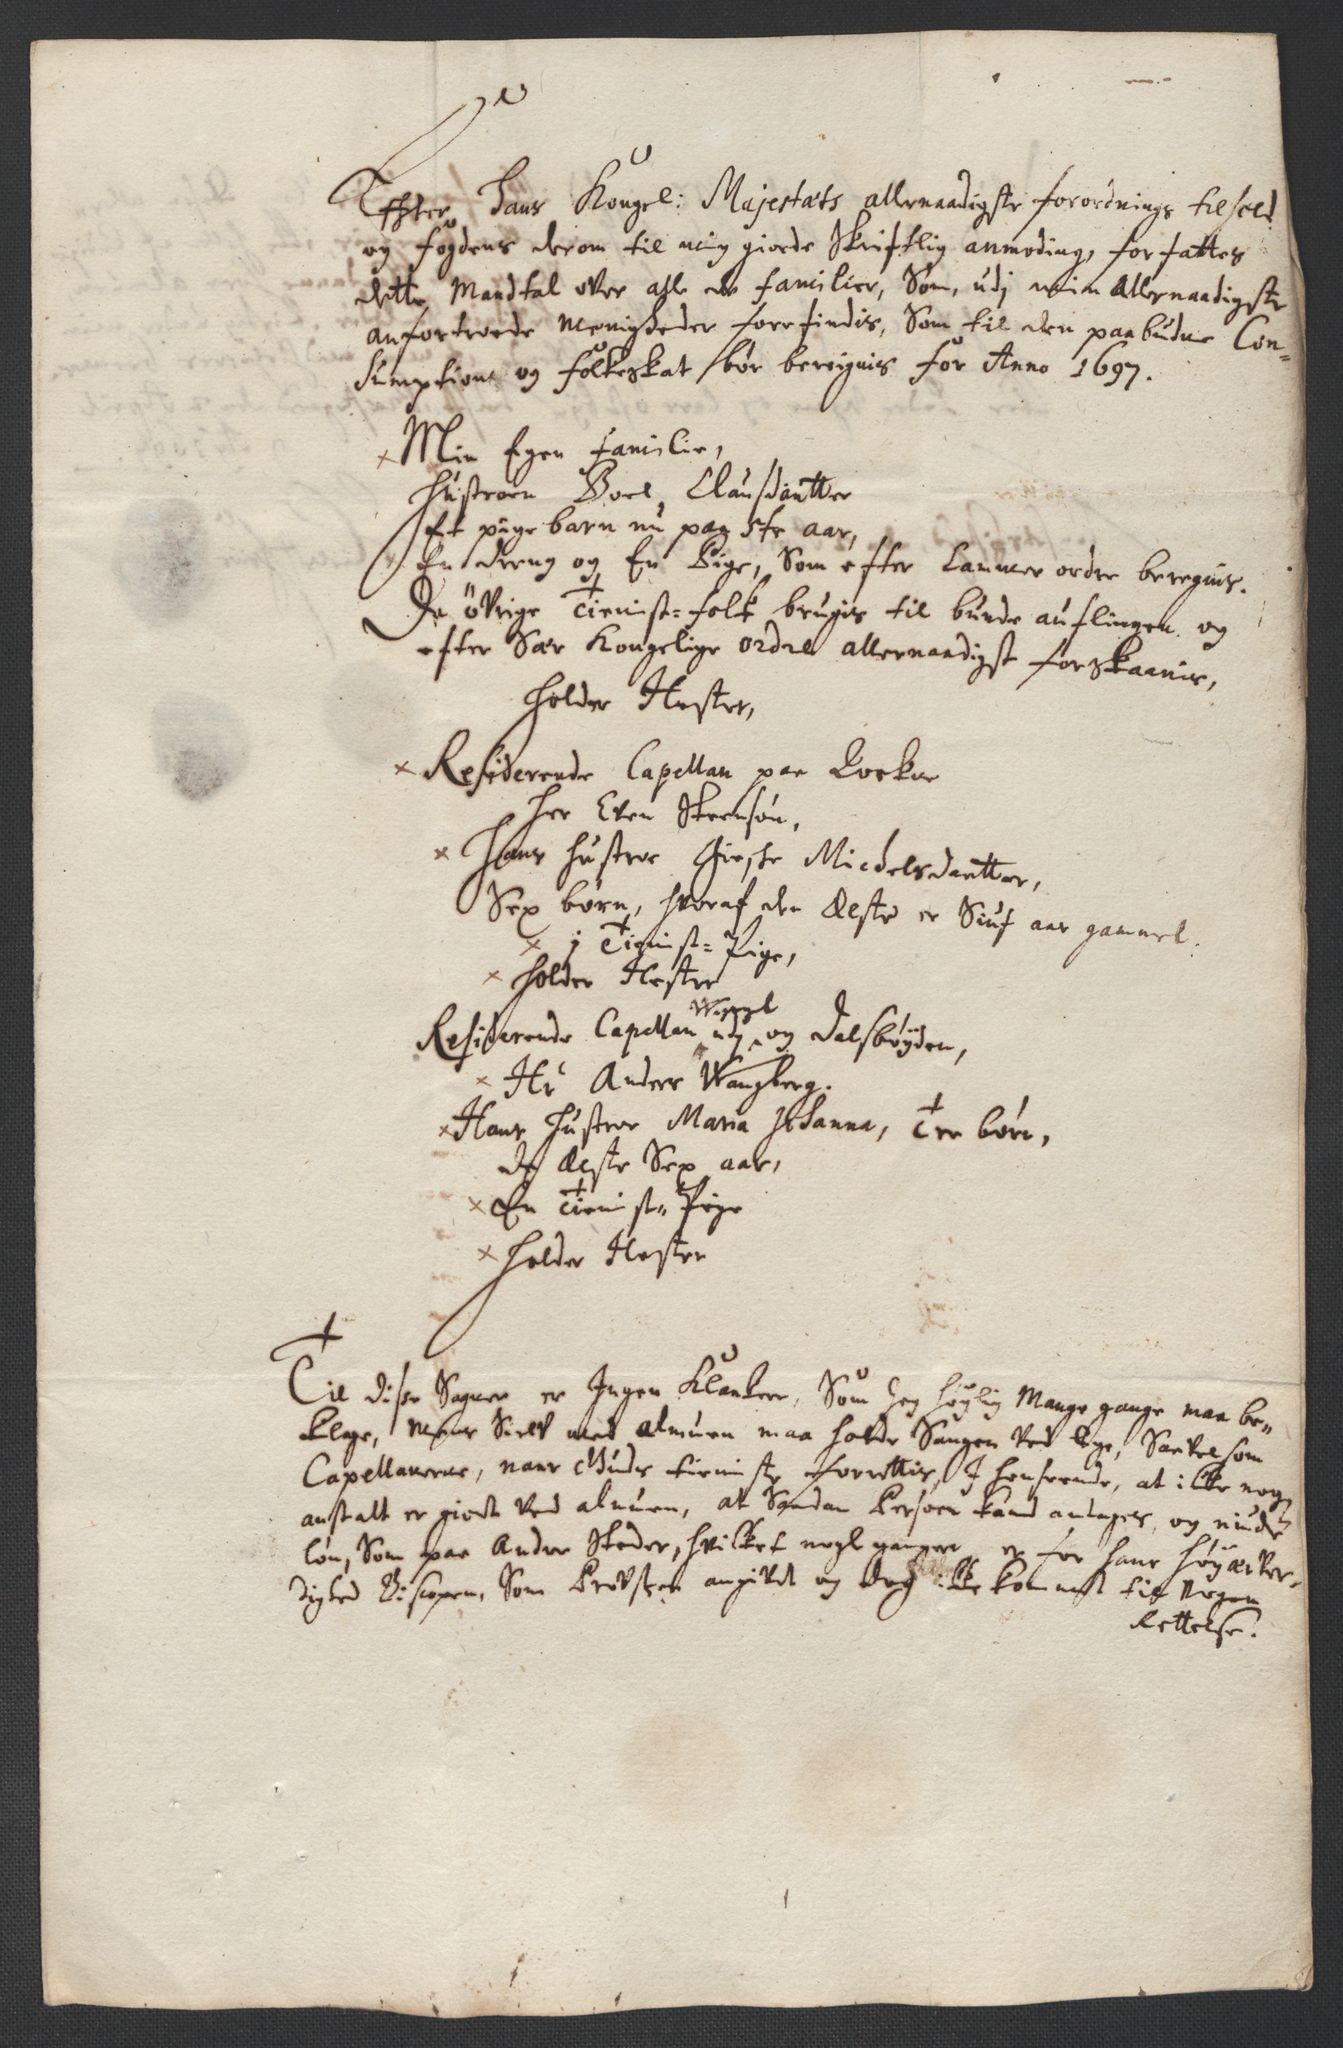 Effter Hans Kongel: Majestats allernaadigste forordnings tilhold
og fogdens derom til mig giorde skriftlig anmoding, forfattes
dette Mandtal over alle de familier, Som, udj min allernaadigste
anfortroede Menigheder forefindis, Som til den paabudne Con-
sumptions og folkeskat bør bereignis for Anno 1697.
Min Egen familie,
Hustroen Boel Clausdaatter
Et pigebarn nu paa 5te aar,
En dreng og En Pige, Som efter ordre beregnis.
De øvrige Tienist-folk brugis til bunde auflingen og
efter Kongelige ordre allernaadigst forskaanis,
Holder Hester,
Residerende Capellan paa
Her Even Steensøn,
Hans hustroe Michelsdaatter,
Sex børn, hvoraf den Elste er Siuf aar gammel.
1 Tienist-Pige,
Holder Hester
Residerende Capellan udj og Dalsbøyden,
Hr Anders Wangberg.
Hans Hustroe Maria Johanna, Tre børn,
de Elste Sex aar,
En Tienist-Pige
Holder Hester
Til disse Sogner er Ingen Klocker, Som Jeg høylig Mange gange maa be-
klage, Mens Sielv med almuen maa holde Sangen ved lige, Saavelsom
Capellanerne, naar Guds tieniste forrettis, I henseende, at icke nogen
anstalt er giort ved almuen, at Saadan Person kand antages, og niude
løn, Som paa Andre Steder, hvilket nogle ganger er for hans Høyærver-
dighed Biscopen, Som Provsten angivet og dog icke kommet til Nogen
Rettelse.